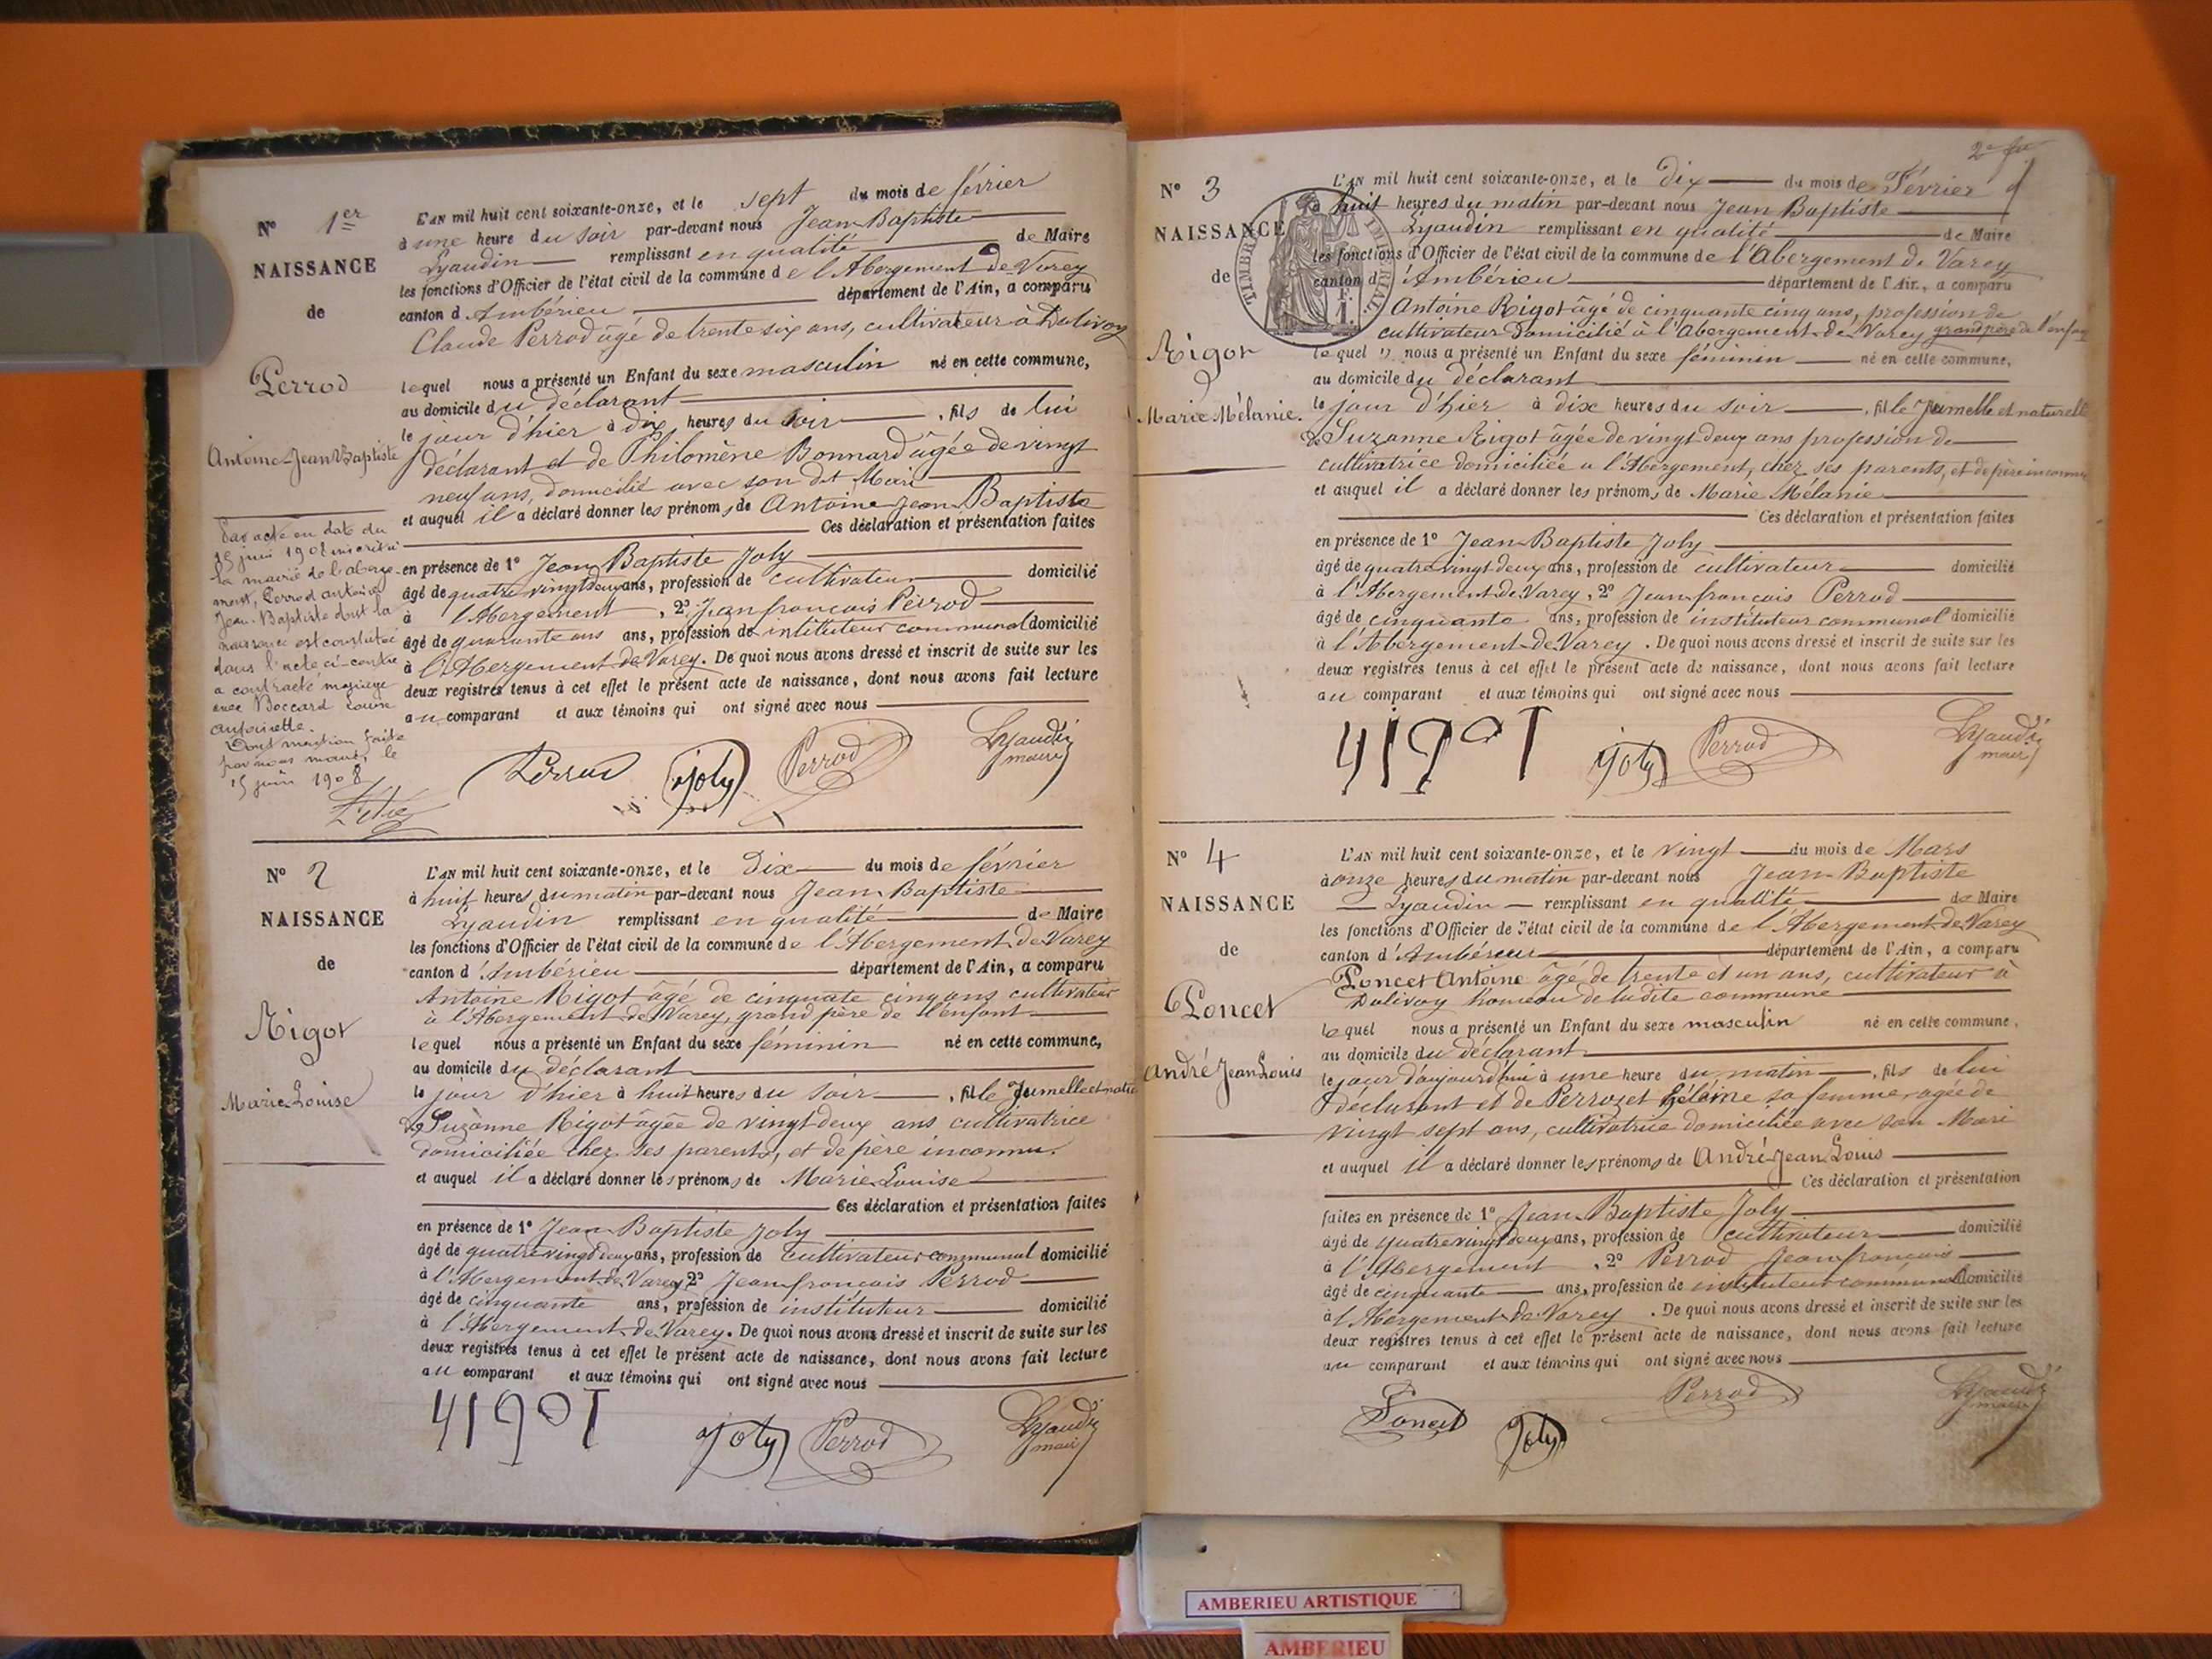 N° 1er
NAISSANCE
de
Perrod
Antoine Jean Baptiste
Par acte en date du
15 juin 1908 inscrit à
la mairie de l'aberge-
ment, Perrod antoine
Jean-Baptiste dont la
naissance est constatée
dans l'acte ci-contre
a contracté mariage
avec Boccard Louise
antoinette.
Dont mention faite
par nous maire, le
15 juin 1908
L'AN mil huit cent soixante-onze, et le sept du mois de février
à une heure du soir par-devant nous Jean-Baptiste
Lyaudin remplissant en qualité de Maire
les fonctions d'Officier de l'état civil de la commune de l'Abergement de Varey
canton d'Ambérieu département de l'Ain, a comparu
Claude Perrod âgé de trente six ans, cultivateur à Dalivoy
lequel nous a présenté un Enfant du sexe masculin né en cette commune,
au domicile du déclarant
le jour d'hier à dix heures du soir, fils de lui
déclarant et de Philomène Bonnard âgée de vingt
neuf ans, domicilié avec son dit Mari
et auquel il a déclaré donner les prénoms de Antoine Jean Baptiste
Ces déclaration et présentation faites
en présence de 1° Jean Baptiste Joly
âgé de quatre vingt deux ans, profession de cultivateur domicilié
à l'Abergement, 2° Jean françois Perrod
âgé de quarante ans ans, profession de intituteur communal domicilié
à l'Abergement de Varey. De quoi nous avons dressé et inscrit de suite sur les
deux registres tenus à cet effet le présent acte de naissance, dont nous avons fait lecture
au comparant et aux témoins qui ont signé avec nous
Perrod joly Perrod Lyaudin
maire
N° 2
NAISSANCE
de
Rigot
Marie Louise
L'AN mil huit cent soixante-onze, et le Dix du mois de février
à huit heures du matin par-devant nous Jean Baptiste
Lyaudin remplissant en qualité de Maire
les fonctions d'Officier de l'état civil de la commune de l'Abergement de Varey
canton d'Ambérieu département de l'Ain, a comparu
Antoine Rigot âgé de cinquate cinq ans cultivateur
à l'Abergement de Varey, grand père de l'enfant
lequel nous a présenté un Enfant du sexe féminin né en cette commune,
au domicile du déclarant
le jour d'hier à huit heures du soir, fille Jumelle et natu
de Suzanne Rigot âgée de vingt deux ans cultivatrice
domiciliée chez ses parents, et de père inconnu.
et auquel il a déclaré donner les prénoms de Marie Louise
Ces déclaration et présentation faites
en présence de 1° Jean Baptiste Joly
âgé de quatre vingt deux ans, profession de cultivateur communal domicilié
à l'Abergement de Varey 2° Jean françois Perrod
âgé de cinquante ans, profession de instituteur domicilié
à l'Abergement de Varey. De quoi nous avons dressé et inscrit de suite sur les
deux registres tenus à cet effet le présent acte de naissance, dont nous avons fait lecture
au comparant et aux témoins qui ont signé avec nous
joly Perrod Lyaudin
maire
N° 3
NAISSANCE
de
Rigot
Marie Mélanie.
TIMBRE IMPÉRIAL
L'AN mil huit cent soixante-onze, et le Dix du mois de Février
à huit heures du matin par-devant nous Jean Baptiste
Lyaudin remplissant en qualité de Maire
les fonctions d'Officier de l'état civil de la commune de l'Abergement de Varey
canton d'Ambérieu département de l'Ain, a comparu
Antoine Rigot âgé de cinquante cinq ans, profession de
cultivateur Domicilié à l'Abergement de Varey grand père de l'enfan
lequel nous a présenté un Enfant du sexe féminin né en cette commune,
au domicile du déclarant
le jour d'hier à dix heures du soir, fille Jumelle et naturelle
de Suzanne Rigot âgée de vingt deux ans profession de
cultivatrice domiciliée a l'Abergement, chez ses parents, et de père inconnu
et auquel il a déclaré donner les prénoms de Marie Mélanie
Ces déclaration et présentation faites
en présence de 1° Jean Baptiste Joly
âgé de quatre vingt deux ans, profession de cultivateur domicilié
à l'Abergement de Varey, 2° Jean françois Perrod
âgé de cinquante ans, profession de instituteur communal domicilié
à l'Abergement de Varey. De quoi nous avons dressé et inscrit de suite sur les
deux registres tenus à cet effet le présent acte de naissance, dont nous avons fait lecture
au comparant et aux témoins qui ont signé avec nous
joly Perrod Lyaudin
maire
N° 4
NAISSANCE
de
Poncet
André Jean Louis
L'AN mil huit cent soixante-onze, et le vingt du mois de Mars
à onze heures du matin par-devant nous Jean Baptiste
Lyaudin remplissant en qualité de Maire
les fonctions d'Officier de l'état civil de la commune de l'Abergement de Varey
canton d'Ambérieu département de l'Ain, a comparu
Poncet Antoine âgé de trente et un ans, cultivateur à
Dalivoy hameau de ladite commune
lequel nous a présenté un Enfant du sexe masculin né en cette commune,
au domicile du déclarant
le jour d'aujourd'hui à une heure du matin, fils de lui
déclarant et de Perrozet Hélène sa femme, agée de
vingt sept ans, cultivatrice domiciliée avec son Mari
et auquel il a déclaré donner les prénoms de André Jean Louis
Ces déclaration et présentation
faites en présence de 1° Jean Baptiste Joly
âgé de quatre vingt deux ans, profession de cultivateur domicilié
à l'Abergement, 2° Perrod Jean françois
âgé de cinquante ans, profession de instituteur communal domicilié
à l'Abergement de Varey. De quoi nous avons dressé et inscrit de suite sur les
deux registres tenus à cet effet le présent acte de naissance, dont nous avons fait lecture
au comparant et aux témoins qui ont signé avec nous
Poncet Joly Perrod Lyaudin
maire
AMBERIEU ARTISTIQUE
AMBERIEU